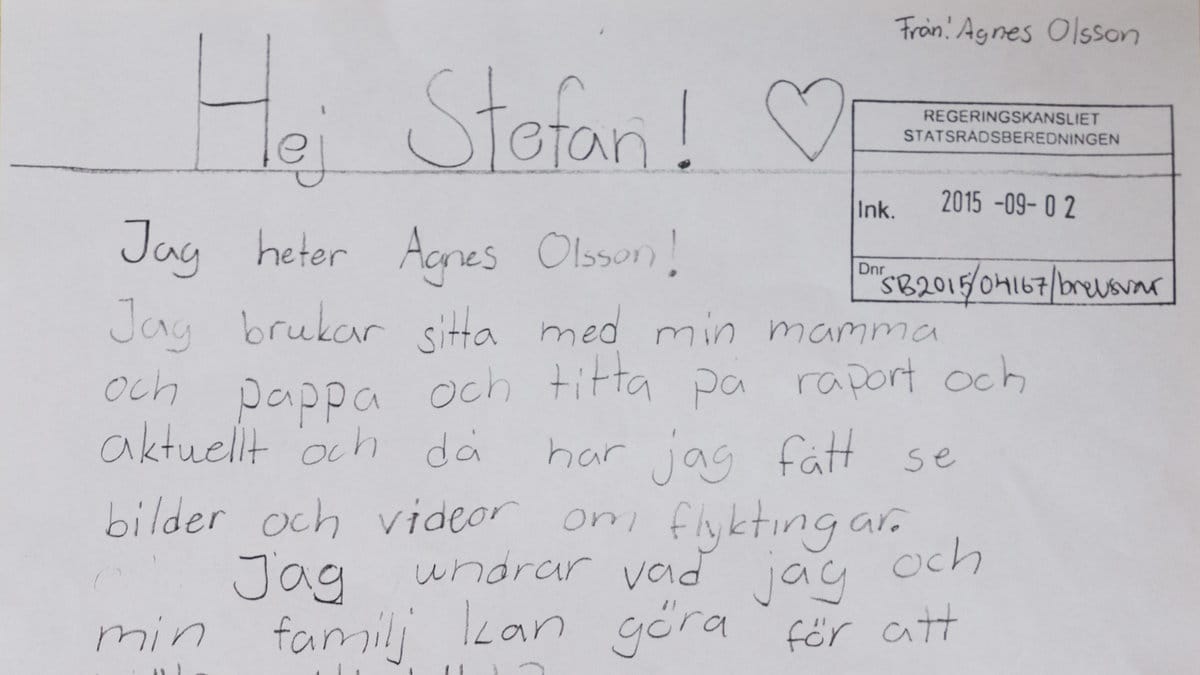 Från: Agnes Olsson
Hej Stefan!
REGERINGSKANSLIET
STATSRÅDSBEREDNINGEN
Ink. 2015 -09- 0 2
Dnr SB2015/04167/brevsvar
Jag heter Agnes Olsson!
Jag brukar sitta med min mamma
och pappa och titta på raport och
aktuellt och då har jag fått se
bilder och videor om flyktingar.
Jag undrar vad jag och
min familj kan göra för att